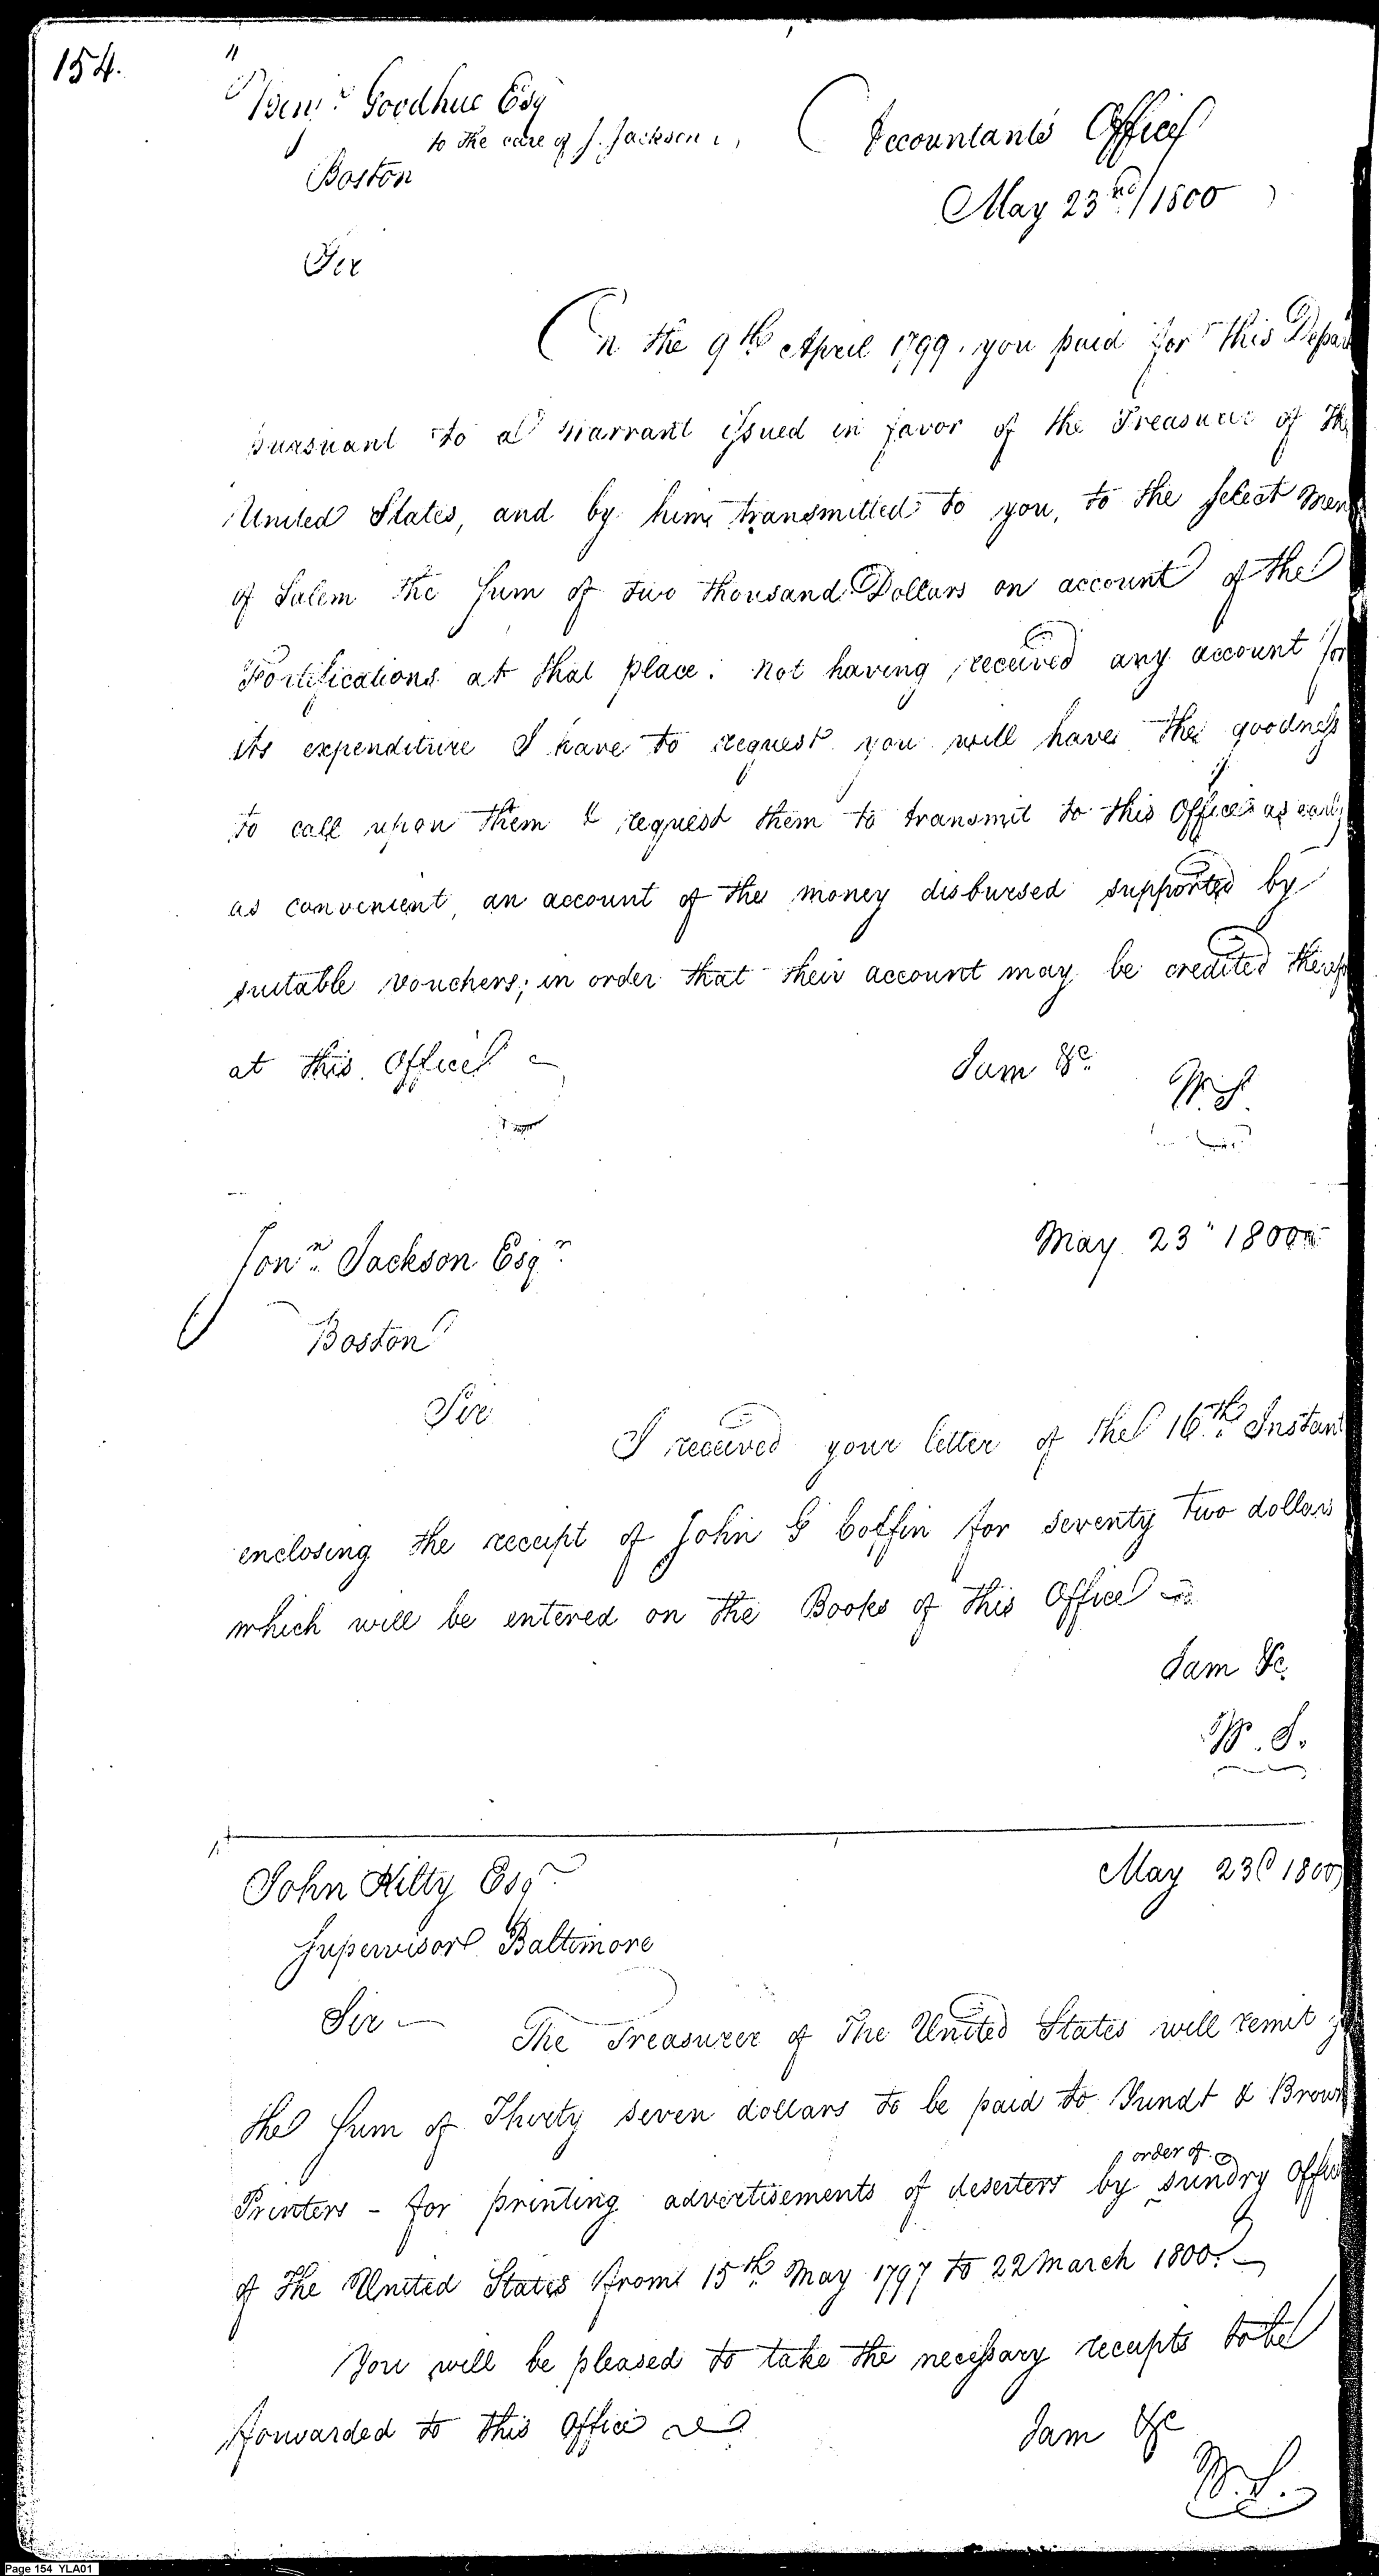 154.
Benj.n Goodhue Esq
to the care of J. Jackson
Boston
Accountants Office
May 23rd/1800
Sir
On the 9th April 1799. you paid for this Depar
pursuant to a warrant issued in favor of the Treasurer of the
United States, and by him transmitted to you, to the select Men
of Salem the Sum of two thousand Dollars on account of the
Fortifications at that place. Not having received any account for
its expenditure I have to request you will have the goodness
to call upon them & request them to transmit to this Office as early
as convenient, an account of the money disbursed supported by
suitable vouchers; in order that their account may be credited
at this Office
I am &c
W. S.
Jon.n Jackson Esq.r
May 23 1800
Boston
Sir
I received your letter of the 16th Instant
enclosing the receipt of John G Coffin for seventy two dollars
which will be entered on the Books of this Office
I am &c.
W. S.
John Kilty Esqr
May 23d 1800
Supervisor Baltimore
Sir —
The Treasurer of The United States will remit
the Sum of Thirty seven dollars to be paid to Yundt & Brown
order of
Printers - for printing advertisements of deserters by sundry Offic
of The United States from 15th May 1797 to 22 March 1800. —
You will be pleased to take the necessary receipts to be
forwarded to this Office
I am &c
W. S.
Page 154 YLA01